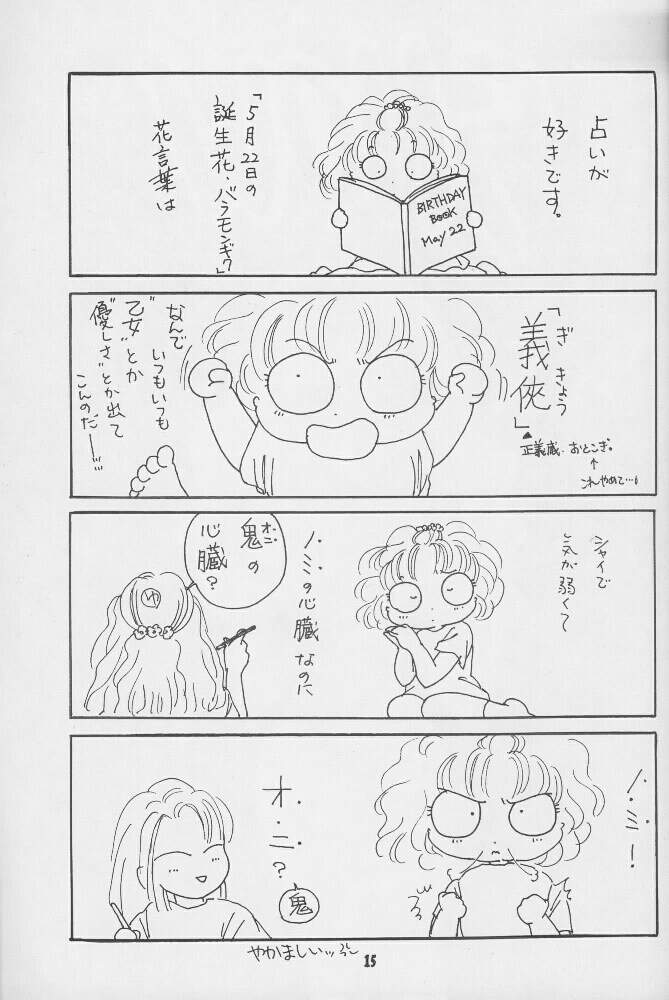 占いが
好きです。
BIRTHDAY
BOOK
May 22
「5月22日の
誕生花・バラモンギク」
花言葉は
「義俠」
ぎきょう
正義感・おとこぎ。
↑
これやめて…
なんで
いつもいつも
"乙女"とか
"優しさ"とか出て
こんのだーー
シャイで
気が弱くて
ノ・ミの心臓なのに
オ・ニ
鬼の
心臓?
ゆ
ノ・ミ!
オ・ニ?
鬼
やかましいッ
15